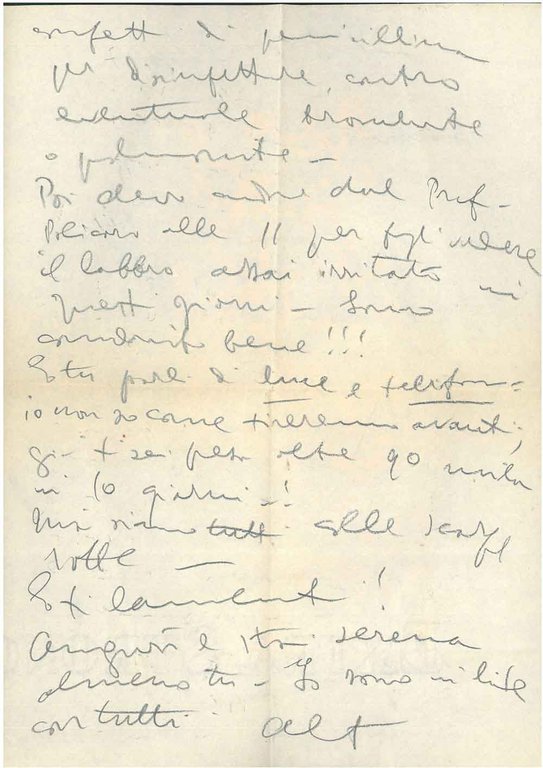 confetti di penicillina
per disinfettare, contro
eventuale bronchite
o polmonite –
Poi devo andare dal Prof –
alle 11 per fargli vedere
il labbro assai irritato in
questi giorni – Sono
bene!!!
E tu parli di luce e telefon=
io non so come tireremo avanti,
già ti sei presa oltre 90 mila
in 10 giorni –!
Noi siamo tutti alle scarpe
rotte –
E ti lamenti!
Auguri e stai serena
almeno tu – Io sono in lite
con tutti